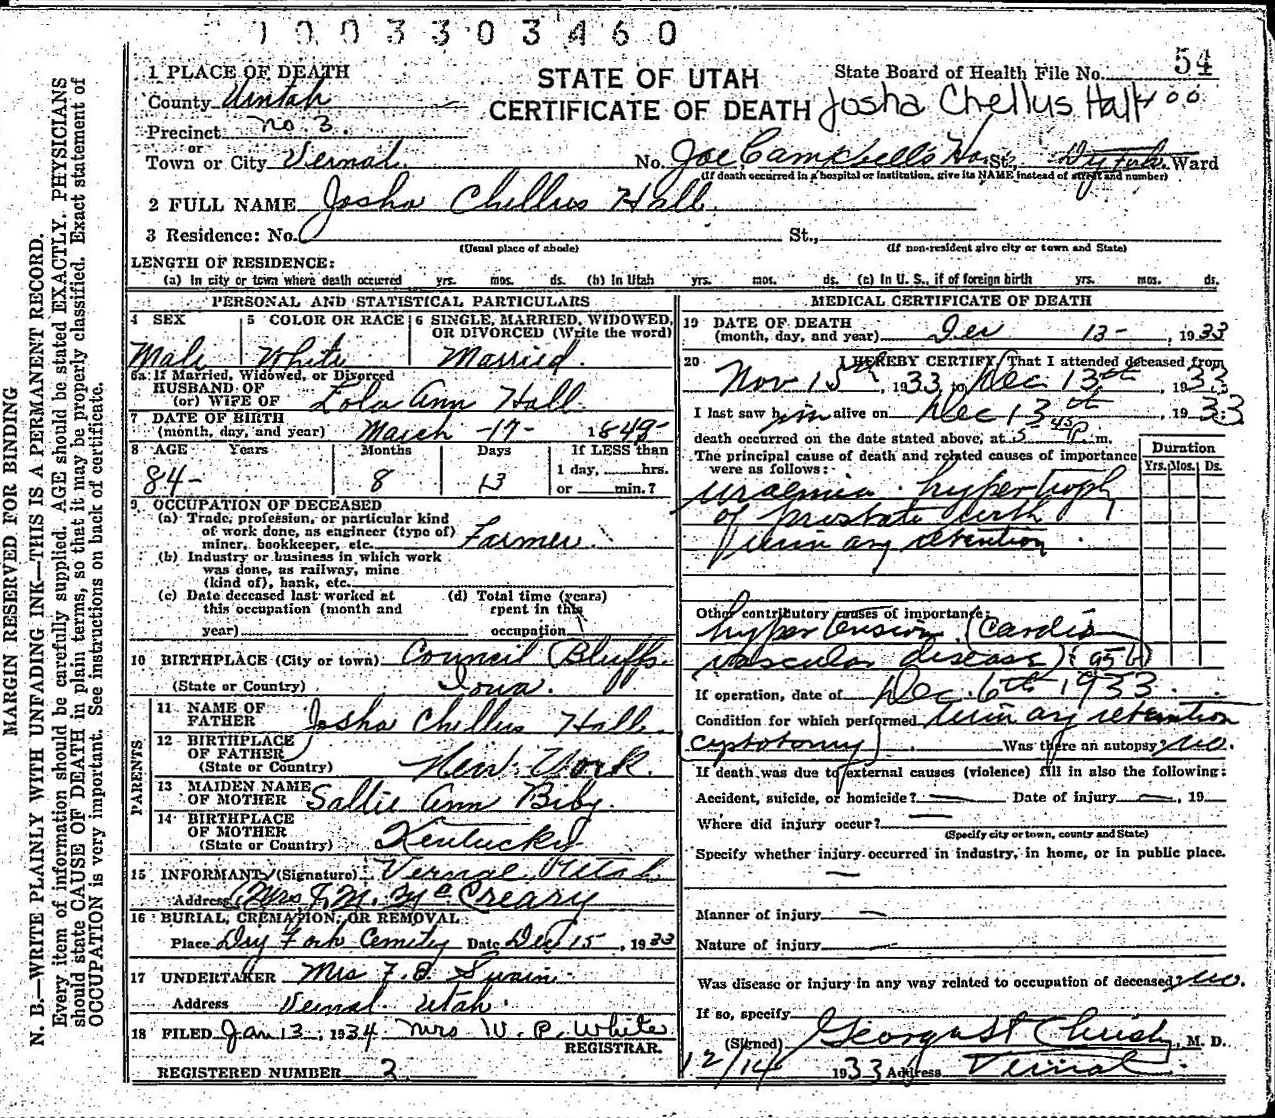 1003303460
54
1 PLACE OF DEATH
STATE OF UTAH
State Board of Health File No.
County Uintah
CERTIFICATE OF DEATH
Josha Chellus Hall 400
Precinct No 3.
or
Town or City Vernal No. Joe Campbell's Ho. St. Dry Fork Ward
(If death occurred in a hospital or institution, give its NAME instead of street and number)
2 FULL NAME Josha Chellus Hall
3 Residence: No. St.,
(Usual place of abode) (If non-resident give city or town and State)
LENGTH OF RESIDENCE:
(a) In city or town where death occurred yrs. mos. ds. (b) In Utah yrs. mos. ds. (c) In U. S., if of foreign birth yrs. mos. ds.
PERSONAL AND STATISTICAL PARTICULARS
4 SEX 5 COLOR OR RACE 6 SINGLE, MARRIED, WIDOWED, OR DIVORCED (Write the word)
Male White Married
6a If Married, Widowed, or Divorced
HUSBAND OF
(or) WIFE OF Lola Ann Hall
7 DATE OF BIRTH
(month, day, and year) March -17- 1849-
8 AGE Years Months Days If LESS than
1 day, hrs.
or min.?
84- 8 13
9 OCCUPATION OF DECEASED
(a) Trade, profession, or particular kind
of work done, as engineer (type of)
miner, bookkeeper, etc. Farmer
(b) Industry or business in which work
was done, as railway, mine
(kind of), bank, etc.
(c) Date deceased last worked at
this occupation (month and
year)
(d) Total time (years)
spent in this
occupation
10 BIRTHPLACE (City or town) Council Bluffs
(State or Country) Iowa.
PARENTS
11 NAME OF
FATHER Josha Chellus Hall
12 BIRTHPLACE
OF FATHER
(State or Country) New York.
13 MAIDEN NAME
OF MOTHER Sallie Ann Biby
14 BIRTHPLACE
OF MOTHER
(State or Country) Kentucky
15 INFORMANT (Signature) Vernal Utah
Address (Mrs J. M. McCreary
16 BURIAL, CREMATION, OR REMOVAL
Place Dry Fork Cemitey Date Dec 15-, 1933
17 UNDERTAKER Mrs F. E. Swain
Address Vernal Utah.
18 FILED Jan 13, 1934 Mrs W. P. White
REGISTRAR.
REGISTERED NUMBER 2
MEDICAL CERTIFICATE OF DEATH
19 DATE OF DEATH
(month, day, and year) Dec 13-, 1933
20 I HEREBY CERTIFY, That I attended deceased from
Nov 15th 1933 to Dec 13th 1933
I last saw him alive on Dec 13th, 1933
death occurred on the date stated above, at 5 45 P. m.
The principal cause of death and related causes of importance
were as follows:
Duration
Yrs. Mos. Ds.
Uraemia. hypertrophy
of prostate with
Urin ary retention.
Other contributory causes of importance:
hyper tension (Cardio
vascular disease) (95 b)
If operation, date of Dec. 6th 1933.
Condition for which performed Urin ary retention
(cystotomy). Was there an autopsy? no.
If death was due to external causes (violence) fill in also the following:
Accident, suicide, or homicide? — Date of injury —, 19
Where did injury occur? —
(Specify city or town, county and State)
Specify whether injury occurred in industry, in home, or in public place.
—
Manner of injury —
Nature of injury —
Was disease or injury in any way related to occupation of deceased? no.
If so, specify
(Signed) George St Christy, M. D.
12/14 1933 Address Vernal
MARGIN RESERVED FOR BINDING
N. B.—WRITE PLAINLY WITH UNFADING INK—THIS IS A PERMANENT RECORD.
Every item of information should be carefully supplied. AGE should be stated EXACTLY. PHYSICIANS
should state CAUSE OF DEATH in plain terms, so that it may be properly classified. Exact statement of
OCCUPATION is very important. See instructions on back of certificate.